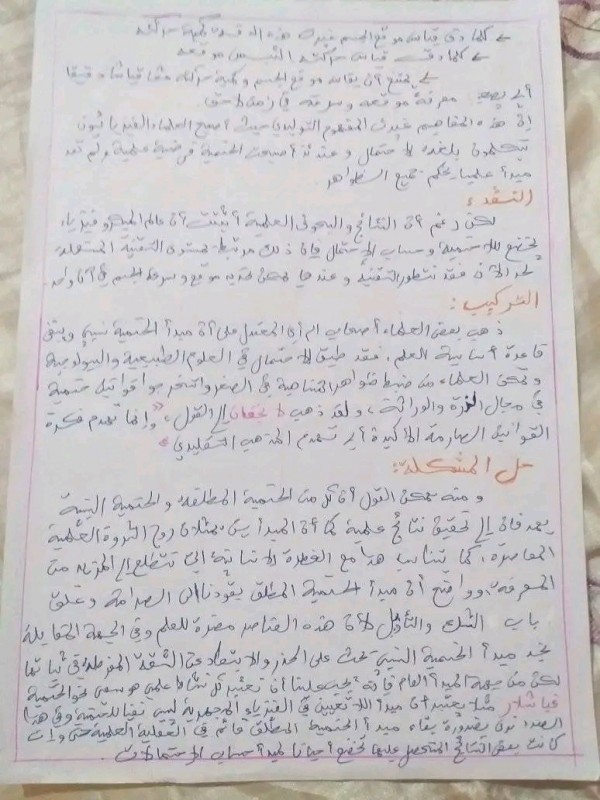 ← كلما دق قياس موقع الجسم غيرت هذه الدقة كمية حركته
← كلما دق قياس حركته التبس موقعه
← يمتنع أن يقاس موقع الجسم وكمية حركته معا قياسا دقيقا
أي يصعب معرفة موقعه وسرعته في زمن لاحق
إن هذه المفاهيم غيرت المفهوم التوليدي حيث أصبح العلماء الفيزيائيون
يتكلمون بلغة الاحتمال وعندئذ أصبحت الحتمية فرضية علمية ولم تعد
مبدأ علميا يحكم جميع الظواهر.
النقد:
لكن رغم أن النتائج والبحوث العلمية أثبتت أن عالم الميكروفيزياء
يخضع للاحتمية وحساب الاحتمال فإن ذلك مرتبط بمستوى التقنية المستعملة
لحد الآن فقد تتطور التقنية وعندها يمكن تحديد موقع وسرعة الجسم في آن واحد.
التركيب:
ذهب بعض العلماء أصحاب الرأي المعتدل على أن مبدأ الحتمية نسبي ويبقى
قاعدة أساسية للعلم، فقد طبق الاحتمال في العلوم الطبيعية والبيولوجية
وتمكن العلماء من ضبط ظواهر المتناهية في الصغر واستخرجوا قوانين حتمية
في مجال الذرة والوراثة، ولقد ذهب لانجفان إلى القول "وإنما تهدم فكرة
القوانين الصارمة الأكيدة أي تهدم المذهب التقليدي"
حل المشكلة:
ومنه يمكن القول أن كل من الحتمية المطلقة والحتمية النسبية
يهدفان إلى تحقيق نتائج علمية كما أن المبدأين يمثلان روح الثورة العلمية
المعاصرة، كما يتناسب هذا مع الفطرة الإنسانية التي تتطلع إلى المزيد من
المعرفة، وواضح أن مبدأ الحتمية المطلق يقودنا إلى الصرامة وغلق
باب الشك والتأويل لأن هذه العناصر مضرة للعلم وفي الجهة المقابلة
نجد مبدأ الحتمية النسبي يحث على الحذر والابتعاد عن الثقة المفرطة في ثباتها
لكن من جهة المبدأ العام فإنه يجب علينا أن نعتبر كل نشاط علمي هو سعي نحو الحتمية
فباشلار مثلا يعتبر أن مبدأ اللاتعيين في الفيزياء المجهرية ليس نفيا للحتمية وفي هذا
الصدد نرى بضرورة بقاء مبدأ الحتمية المطلق قائم في العقلية العلمية حتى وإن
كانت بعض النتائج المتحصل عليها تخضع أحيانا لمبدأ حساب الاحتمالات.